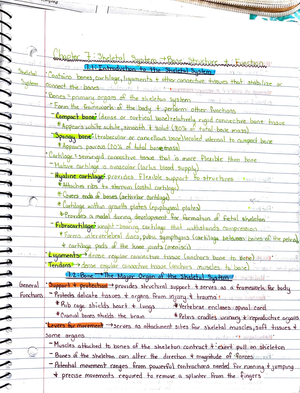 Chapter 7: Skeletal System → Bone Structure & Function
7.1: Introduction to the Skeletal System
Skeletal System
- Contains bones, cartilage, ligaments & other connective tissues that stabilize or connect the bones
- Bones → primary organs of the skeleton system
- Form the framework of the body & perform other functions
- Compact bone (dense or cortical bone) → relatively rigid connective bone tissue
* Appears white, smooth, & solid (80% of total bone mass)
- Spongy bone (trabecular or cancellous bone) → located internal to compact bone
* Appears porous (20% of total bone mass)
- Cartilage → semirigid connective tissue that is more flexible than bone
- Mature cartilage is avascular (lacks blood supply)
- Hyaline cartilage → provides flexible support to structures
* Attaches ribs to sternum (costal cartilage)
* Covers ends of bones (articular cartilage)
* Cartilage within growth plates (epiphyseal plates)
* Provides a model during development for formation of fetal skeleton
- Fibrocartilage → weight-bearing cartilage that withstands compression
* Forms intervertebral discs, pubic symphysis (cartilage between bones of the pelvis)
& cartilage pads of the knee joints (menisci)
- Ligaments → dense regular connective tissue (anchors bone to bone)
- Tendons → dense regular connective tissue (anchors muscles to bone)
7.2: Bone → The Major Organ of the Skeletal System
General Functions
- Support & protection → provides structural support & serves as a framework for body
- Protects delicate tissues & organs from injury & trauma
* Rib cage shields heart & lungs * Vertebrae encloses spinal cord
* Cranial bones shields the brain * Pelvis cradles urinary & reproductive organs
- Levers for movement → serves as attachment sites for skeletal muscles, soft tissues &
some organs
- Muscles attached to bones of the skeleton contract & exert pull on skeleton
- Bones of the skeleton can alter the direction & magnitude of forces
- Potential movement ranges from powerful contractions needed for running & jumping
& precise movements required to remove a splinter from the fingers